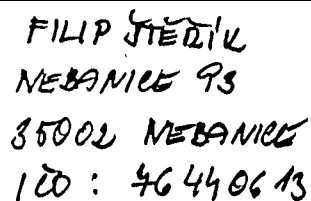 FILIP JTĚŘÍK
NEBANICE 93
35002 NEBANICE
IČO: 76440613